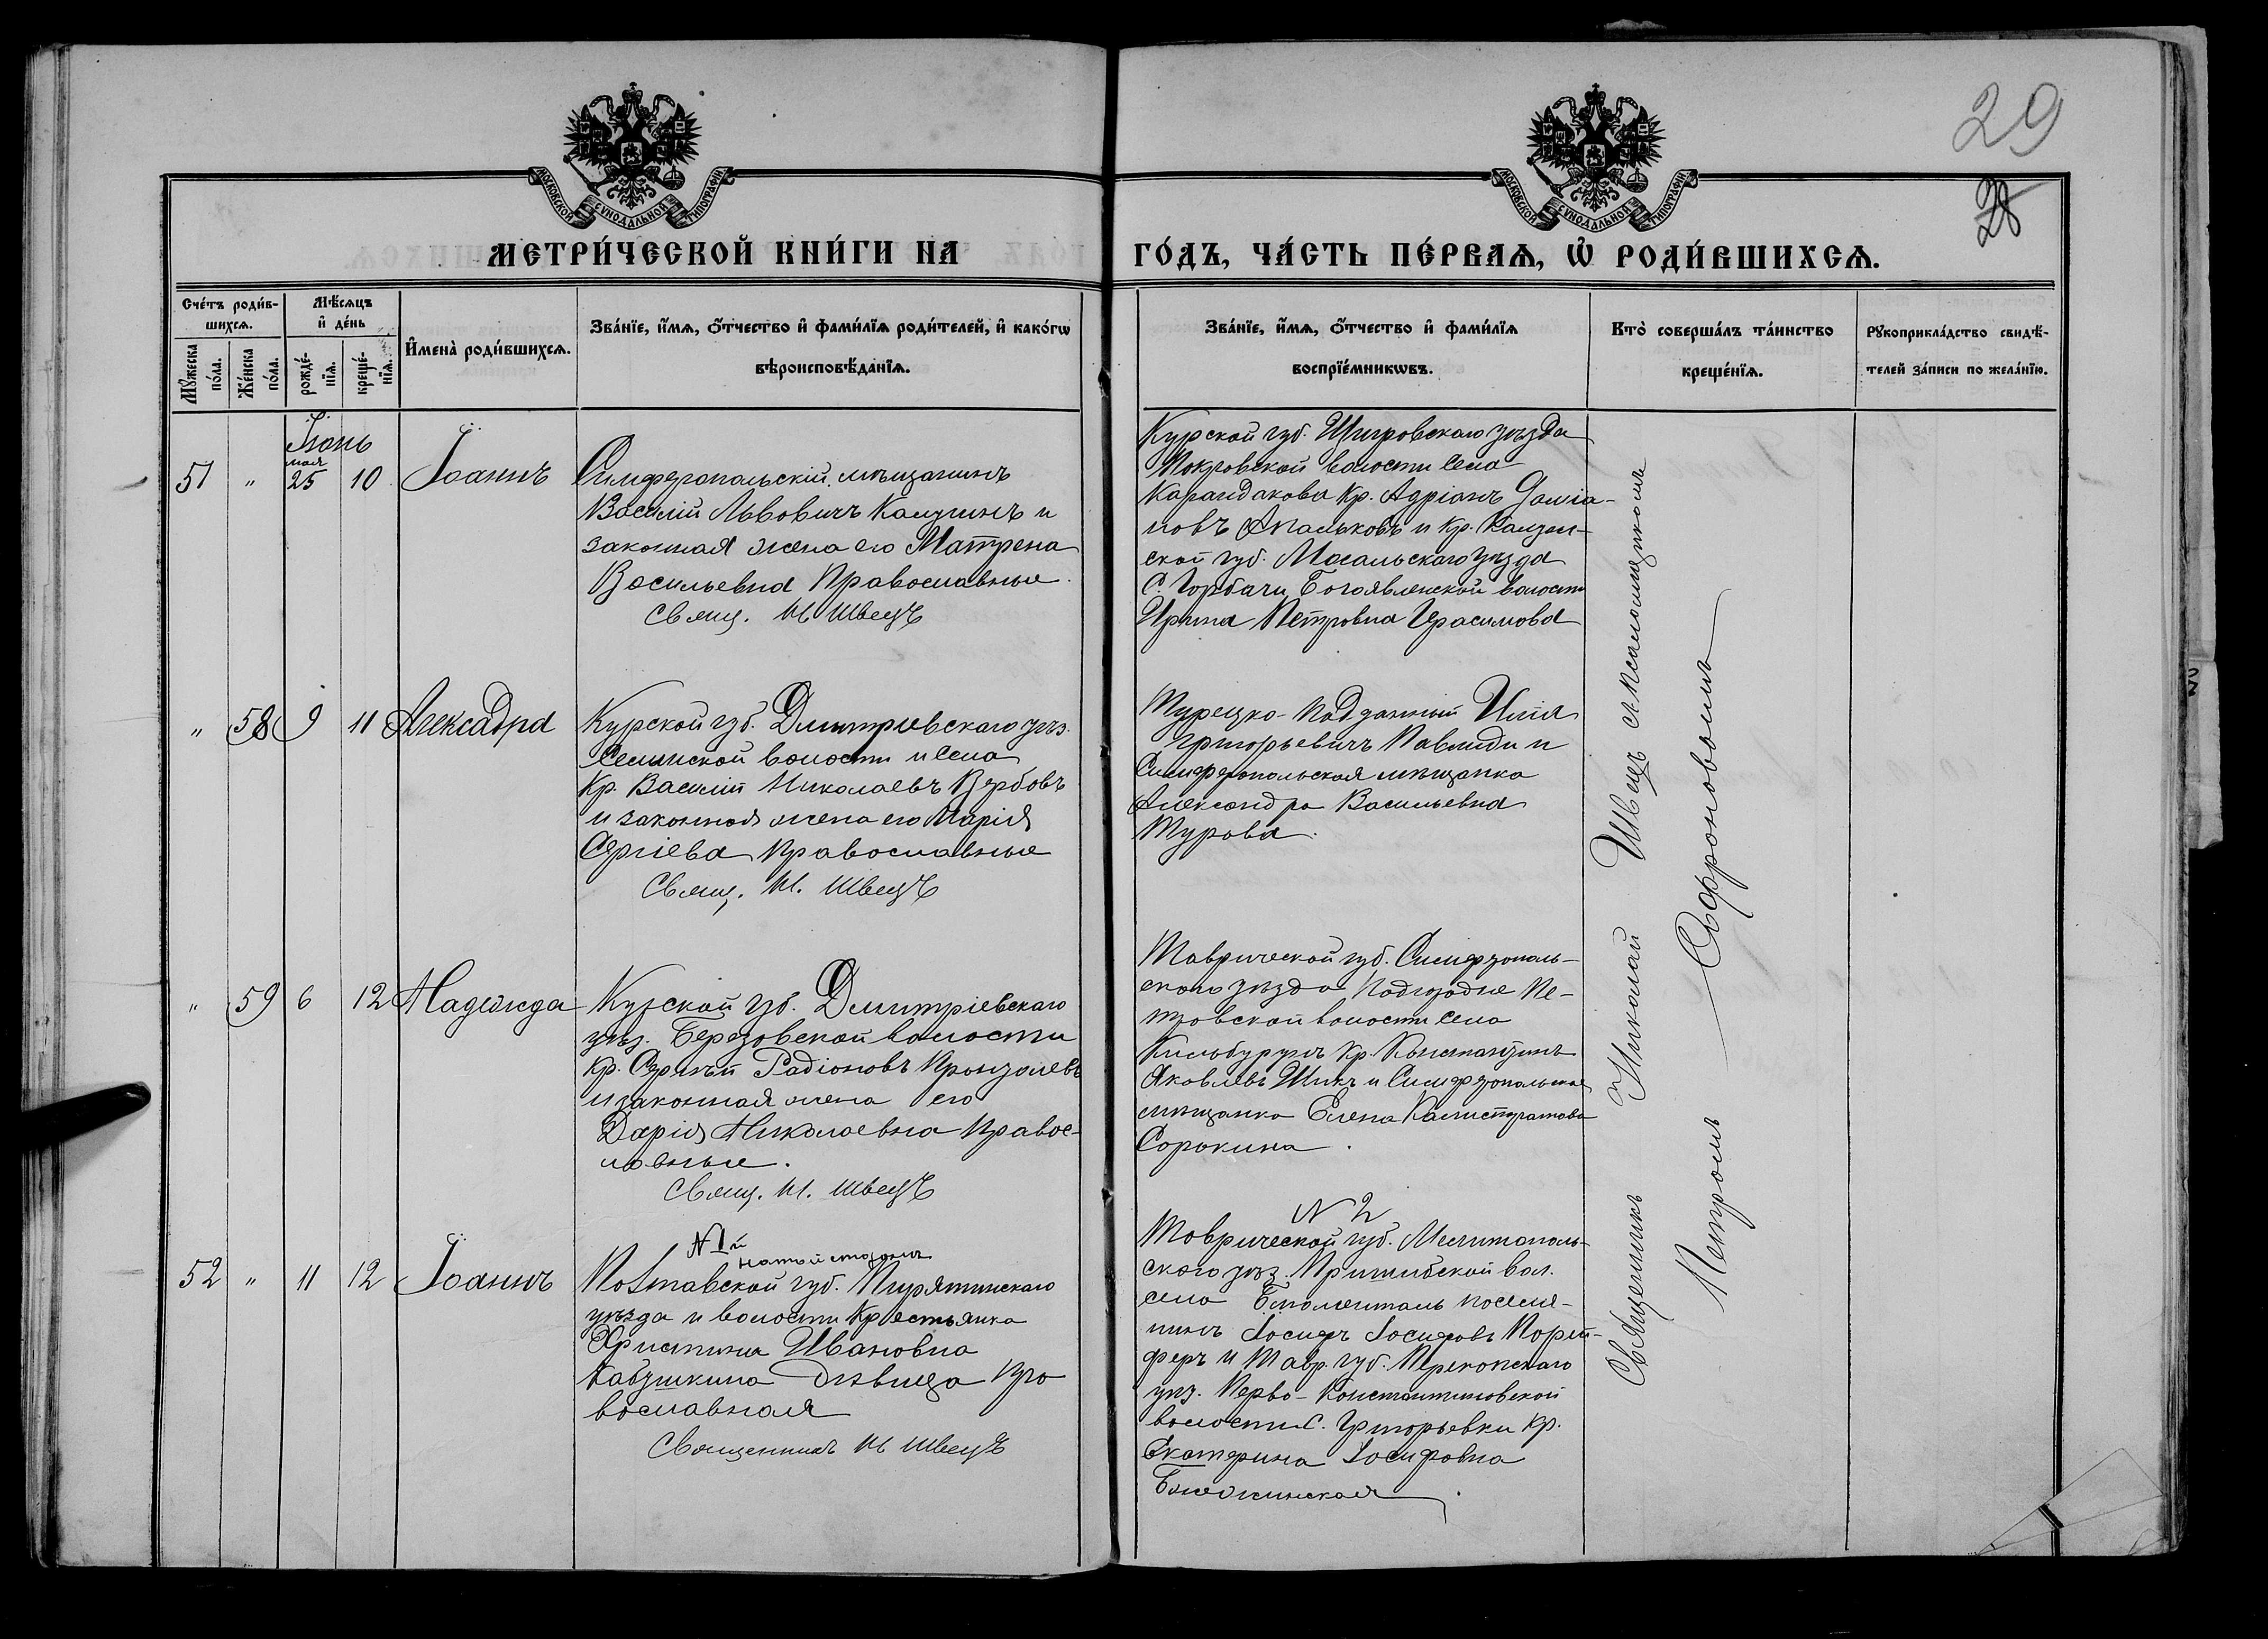 29
28
МОСКОВСКОЙ СѴНОДАЛЬНОЙ ТИПОГРАФІИ
МОСКОВСКОЙ СѴНОДАЛЬНОЙ ТИПОГРАФІИ
МЕТРИ́ЧЕСКОЙ КНИ́ГИ НА ГО́ДЪ, ЧА́СТЬ ПЕ́РВАѦ, Ѡ҆ РОДИ́ВШИХСѦ.
Сче́тъ роди́в-
шихсѧ.
Мꙋ́жеска по́ла.
Же́нска по́ла.
Мѣ́сѧцъ
и҆ де́нь
рожде́-
нїѧ.
креще́-
нїѧ.
И҆мена̀ роди́вшихсѧ.
Зва́нїе, и҆́мѧ, ѻ҆́тчество и҆ фами́лїѧ роди́телей, и҆ како́гѡ
вѣроисповѣ́данїѧ.
Зва́нїе, и҆́мѧ, ѻ҆́тчество и҆ фами́лїѧ
воспрїе́мникѡвъ.
Кто̀ соверша́лъ та́инство
креще́нїѧ.
Рꙋкоприкла́дство свидѣ́-
телей за́писи по жела́нїю.
Іюнь
51 " мая 25 10 Іоаннъ
Симферопольскій мѣщанинъ
Василій Львовичъ Калугинъ и
законная жена его Матрена
Васильевна Православные.
Свящ. Н Швецъ
Курской губ. Щигровскаго уѣзда
Покровской волости села
Карандакова Кр. Адріанъ Даміа-
новъ Апальковъ и Кр. Калуж-
ской губ. Мосальскаго уѣзда
С. Горбачи Богоявленской волости
Ирина Петровна Герасимова
" 58 9 11 Алексадра
Курской губ. Дмитріевскаго уѣз.
Селинской волости и села
Кр. Василій Николаевъ Вербовъ
и законная жена его Марія
Сергіева Православные
Свящ. Н. Швецъ
Турецко-Подданный Илія
Григорьевичъ Павлиди и
Симферопольская мѣщанка
Александра Васильевна
Турова.
" 59 6 12 Надежда
Курской губ. Дмитріевскаго
уѣз. Березовской волости
Кр. Сергѣй Радіоновъ
и законная жена его
Дарія Николаевна Правос-
лавные.
Свящ. Н. Швецъ
Таврической губ. Симферополь-
скаго уѣзда Подгородне Пе-
тровской волости села
Кильбурунъ Кр. Константинъ
Яковлевъ Шикъ и Симферопольская
мѣщанка Елена Калистратова
Сорокина.
52 " 11 12 Іоаннъ
№ 1й
на той сторонѣ
Полтавской губ. Пирятинскаго
уѣзда и волости Крестьянка
Христина Ивановна
Бабушкина дѣвица Пра
вославная
Священникъ Н Швецъ
№ 2
Таврической губ. Мелитополь-
скаго уѣз. Пришибской вол.
села Блюменталь поселя-
нинъ Іосифъ Іосифовъ
и Тавр. губ. Перекопскаго
уѣз. Перво-Константиновской
волости С. Григорьевки Кр.
Екатерина Іосифовна
Священникъ Николай Швецъ съ псаломщикомъ
Петромъ Сафроновымъ